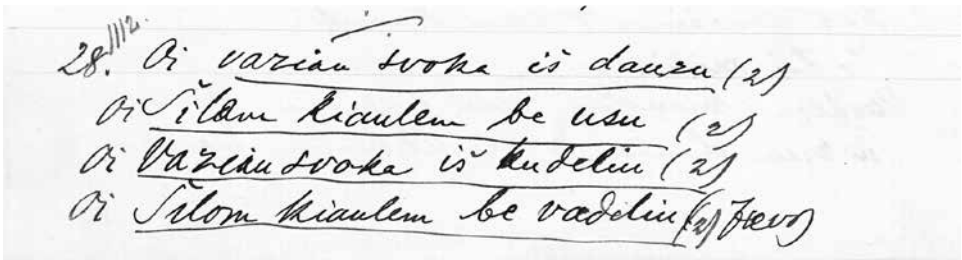 28. III2. Oi vazian svoka iš dauzu (2)
Oi Šilom kiaulem be usu (2)
Oi Vazian svoka iš kudeliu (2)
Oi Šilom kiaulem be vædeliu (2)